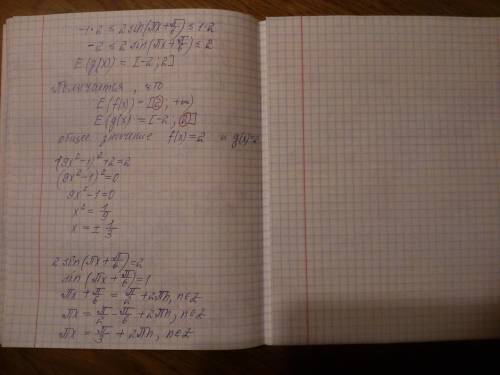 -1·2 ≤ 2 sin(πx+π/6) ≤ 1·2
-2 ≤ 2 sin(πx+π/6) ≤ 2
E(g(x)) = [-2;2]
Получается, что
E(f(x)) = [2; +∞)
E(g(x)) = [-2; 2]
общее значение f(x)=2 и g(x)=2
(9x²-1)²+2=2
(9x²-1)²=0
9x²-1=0
x²=1/9
x=±1/3
2 sin(πx+π/6)=2
sin(πx+π/6)=1
πx+π/6=π/2+2πn, n∈Z
πx=π/2-π/6+2πn, n∈Z
πx=π/3+2πn, n∈Z